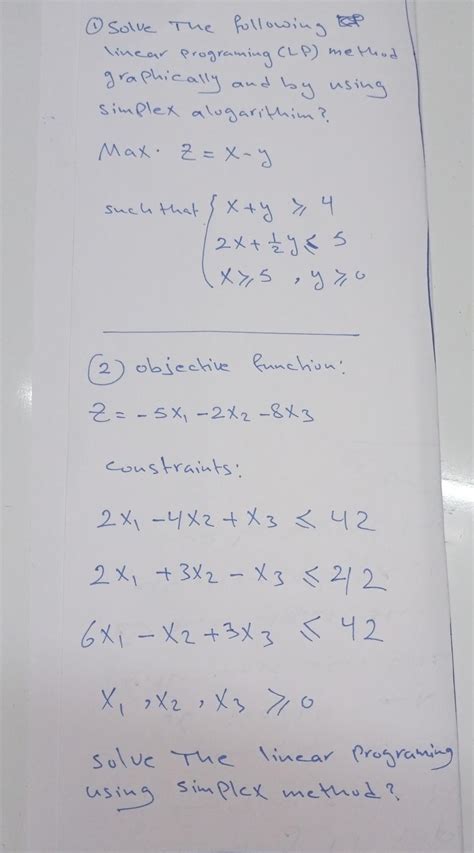 ① Solve The following
linear programing (LP) method
graphically and by using
simplex alugarithim?
Max. Z = x - y
such that { x + y ⩾ 4
2x + ½y ⩽ 5
x ⩾ 5 , y ⩾ 0
② objective function:
Z = -5x₁ - 2x₂ - 8x₃
constraints:
2x₁ - 4x₂ + x₃ ⩽ 42
2x₁ + 3x₂ - x₃ ⩽ 42
6x₁ - x₂ + 3x₃ ⩽ 42
x₁ , x₂ , x₃ ⩾ 0
solve The linear programing
using simplex method?